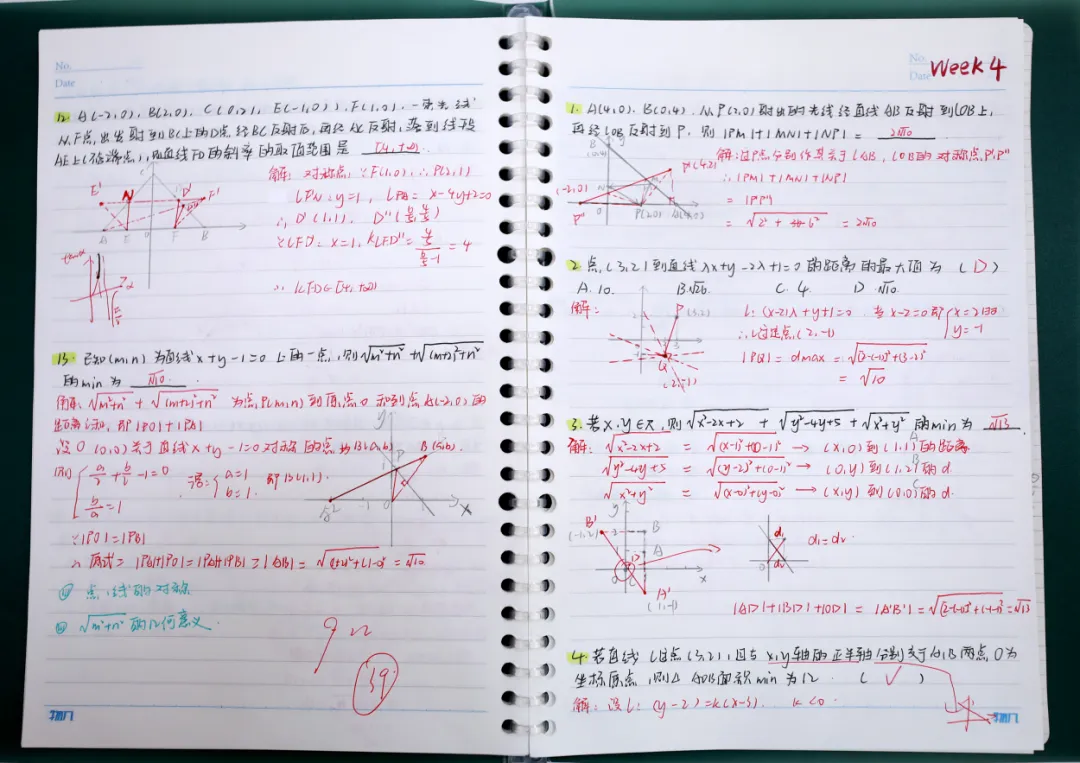 No.
Date
12. A(-2,0), B(2,0), C(0,2), E(-1,0), F(1,0), 一束光线
从F点出发射到BC上的D点经BC反射后,再经AC反射,落到线段
AE上(不含端点),则直线FD的斜率的取值范围是 (4,+∞).
解: 对称点: ∵F(1,0), ∴P(2,1)
LPN: y=1, LPA= x-4y+2=0
∴D'(1,1), D''(6/5, 4/5)
∵LFD': x=1, kLFD''= (4/5)/(6/5-1) = 4
∴ kFD∈(4,+∞)
E' N C D' F'
A E O F B
tanα
α
13. 已知(m,n)为直线x+y-1=0上的一点,则√m²+n² + √(m+2)²+n²
的min为 √10.
解: √m²+n² + √(m+2)²+n² 为点P(m,n)到原点O和到点A(-2,0)的
距离之和, 即|PO|+|PA|
设O(0,0)关于直线x+y-1=0对称的点为B(a,b)
则{ a/2+b/2-1=0
b/a=1
得:{ a=1
b=1. 即B(1,1).
y P B(a,b)
-2 -1 0 1 x
∵|PO|=|PB|
∴ 原式= |PA|+|PO|=|PA|+|PB|≥|AB|= √(1+2)²+(1-0)² =√10
点,线的对称
√m²+n² 的几何意义.
39
No.
Date
Week 4
1. A(4,0), B(0,4), 从P(2,0)射出的光线经直线AB反射到LOB上,
再经LOB反射到P, 则 |PM|+|MN|+|NP| = 2√10
解:过P点分别作其关于LAB, LOB的对称点P',P''
∴|PM|+|MN|+|NP|
= |P'P''|
= √2²+6² = 2√10
y
B
(0,4)
P'(4,2)
(-2,0)
N
P'' 0 P(2,0) A(4,0)
2. 点(3,2)到直线λx+y-2λ+1=0的距离的最大值为 (D)
A. 10. B.√26. C. 4. D.√10.
解:
P (3,2)
Q
(2,-1)
l: (x-2)λ+y+1=0. 当x-2=0即{x=2时
y=-1
∴L过定点(2,-1)
|PQ|= dmax = √(2-(-1))²+(3-2)²
= √10
3. 若x,y∈R, 则√x²-2x+2 + √y²-4y+5 + √x²+y² 的min为 √13.
解: √x²-2x+2 = √(x-1)²+(0-1)² → (x,0)到(1,1)的距离 A
√y²-4y+5 = √(y-2)²+(0-1)² → (0,y)到(1,2)的d. B
√x²+y² = √(x-0)²+(y-0)² → (x,y)到(0,0)的d. C
B'
(-1,2)
y
B
A
x
A'
(1,-1)
d₁
d₂
0
d₁=d₂
|AD|+|BD|+|OD| = |A'B'| = √(2-(-1))²+(-1-1)² =√13
4. 若直线L过点(3,2),且与x,y轴的正半轴分别交于A,B两点,O为
坐标原点,则△AOB面积min为12. (✓)
解: 设L: (y-2)=k(x-3). k<0.